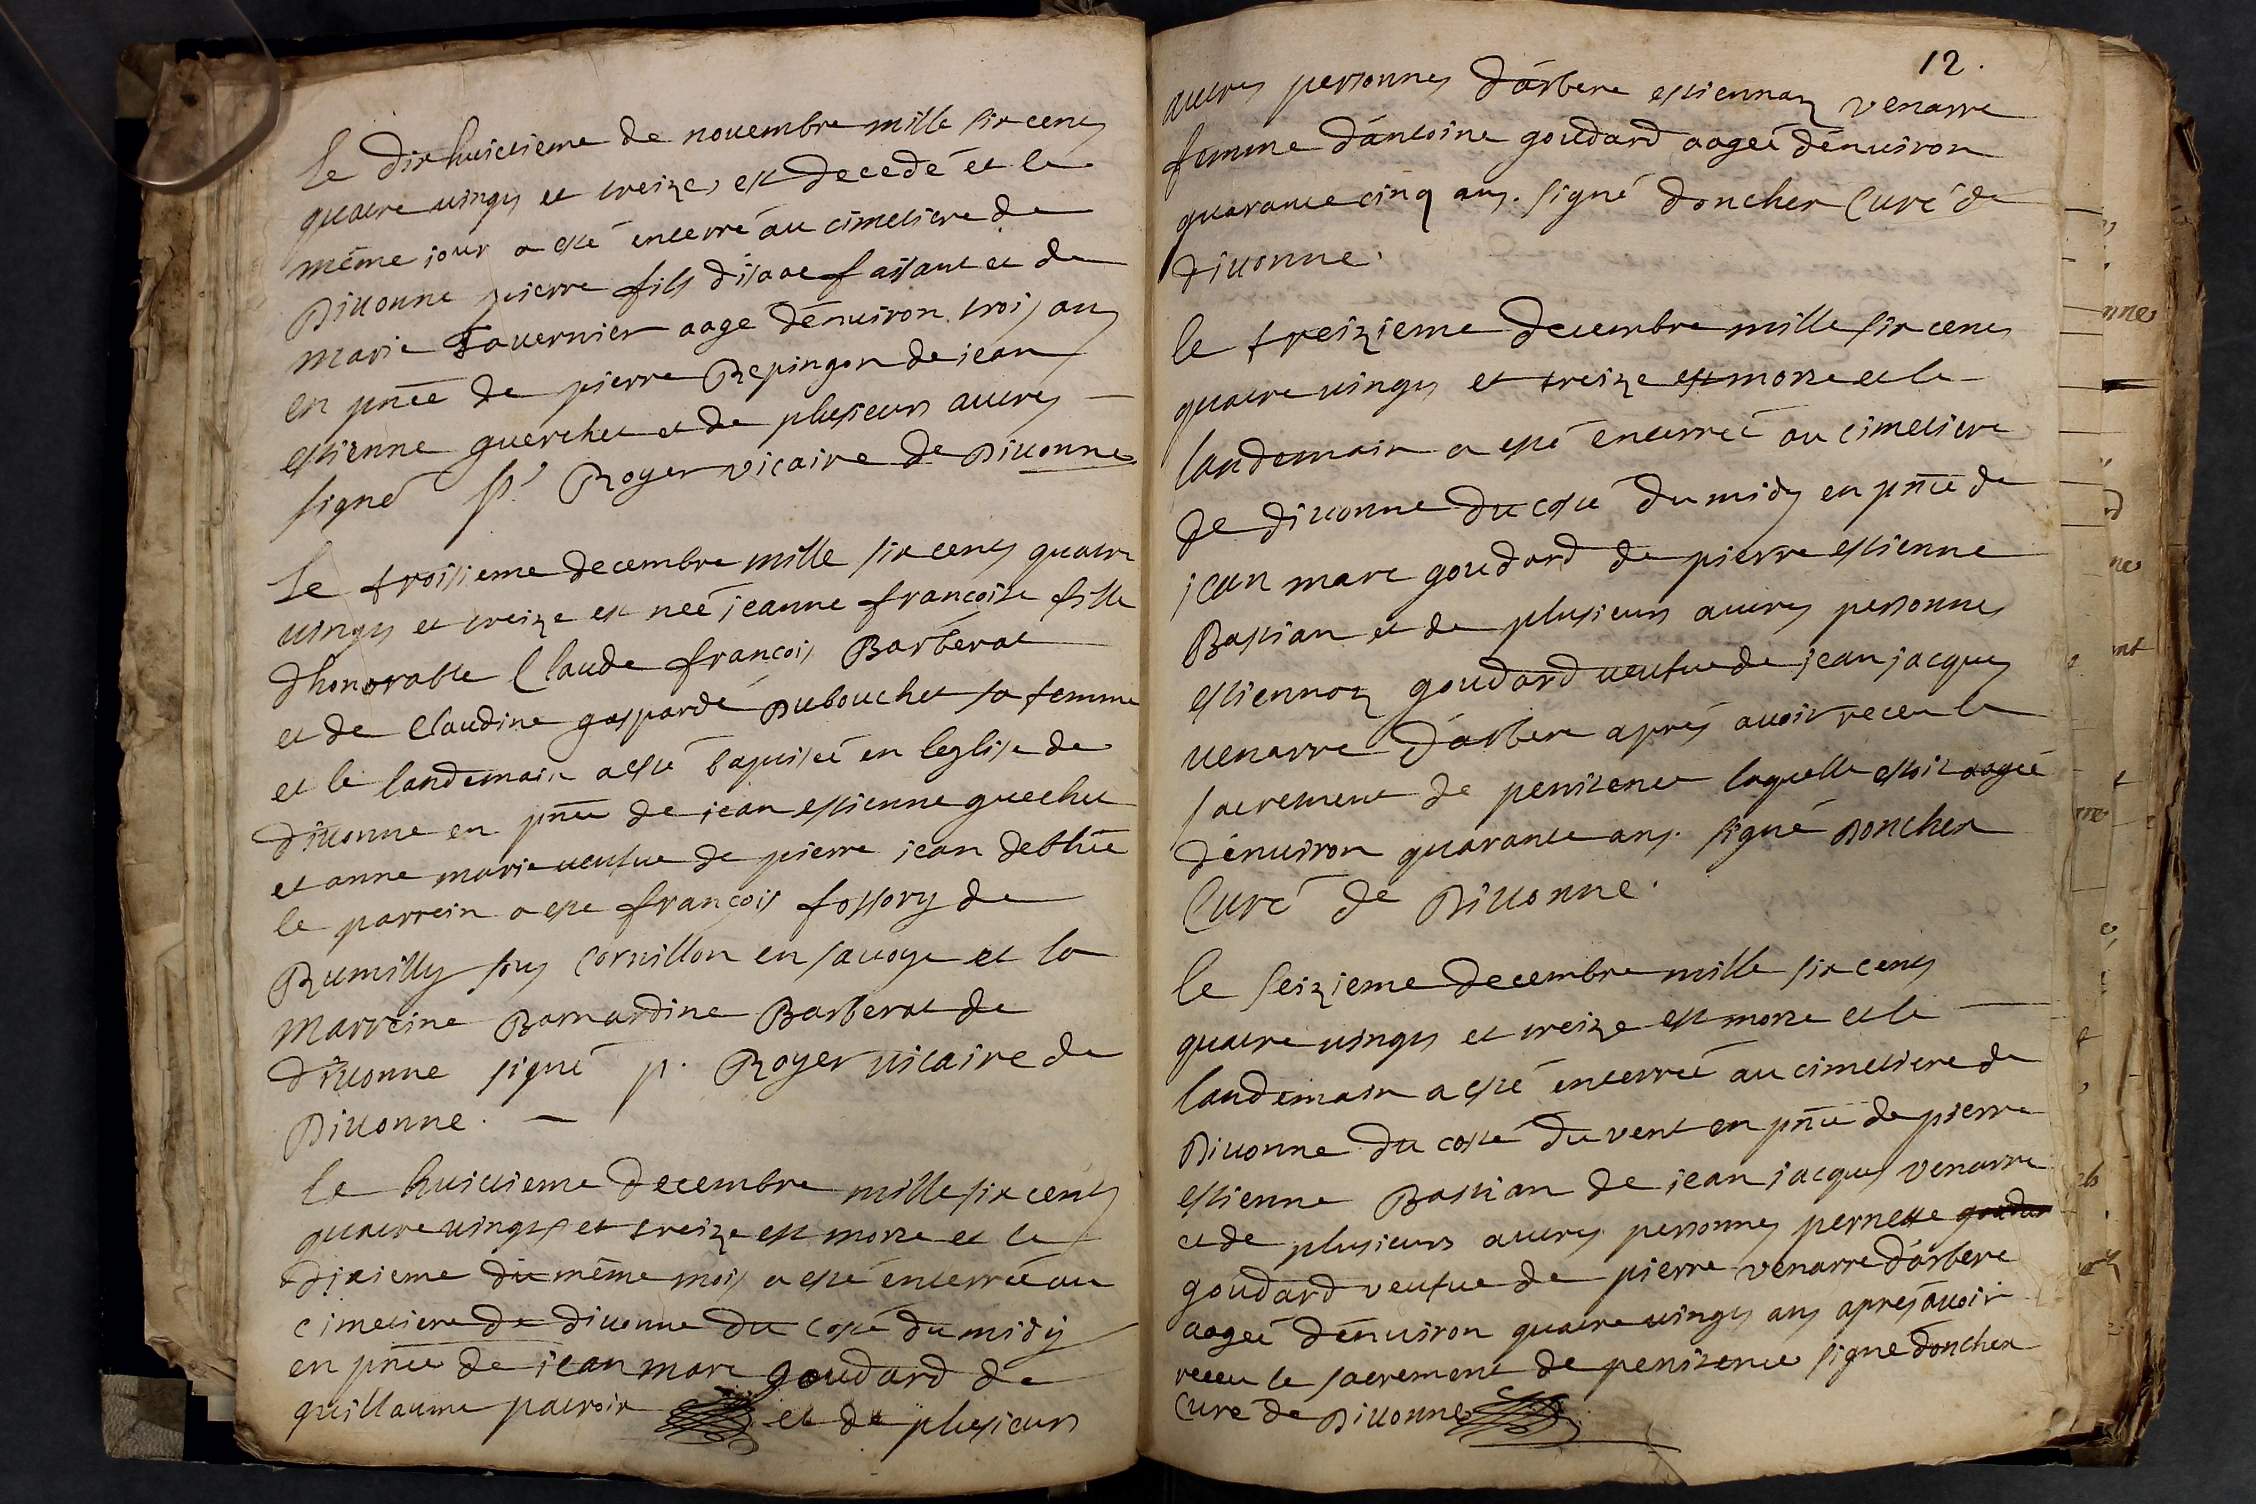 le dixhuictieme de nouembre mille six cens
quatre vingts et treize, est decedé et le
même jour a esté enterré au cimetiere de
Diuonne pierre fils d'isaac faisant et de
marie Tauernier aage d'enuiron trois ans
en pñce de pierre Repingon de jean
estienne guerchet et de plusieurs autres
signé P. Royer vicaire de Diuonne
Le troisieme decembre mille six cens quatre
vingts et treize est neé jeanne francoise fille
d'honorable Claude françois Barberat
et de Claudine gasparde Dubouchet sa femme
et le landemain a esté baptiseé en l'eglise de
diuonne en pñce de jean estienne guechet
et anne marie ueufue de pierre jean
le parrein a este françois fossory de
Rumilly sous Cornillon en sauoye et la
Marreine Barnardine Barberat de
diuonne signé p. Royer uicaire de
Diuonne. —
Le huictieme decembre mille six cents
quatre vingts et treize est morte et le
dixieme du même mois a esté enterreé au
cimetiere de diuonne du costé du midy
en pñce de jean marc goudard de
guillaume patroir et de plusieurs
12.
autres personnes d'arbere estiennaz venarre
femme d'antoine goudard aageé d'enuiron
quarante cinq ans. signé doncher Curé de
diuonne.
le treizieme decembre mille six cens
quatre vingts et treize est morte et le
landemain a esté enterreé au cimetiere
de diuonne du costé du midy en pñce de
jean marc goudard de pierre estienne
Bastian et de plusieurs autres personnes
estiennaz goudard ueufue de jean jacques
uenarre d'arbere aprés auoir receu le
sacrement de penitence laquelle estoit aageé
d'enuiron quarante ans. signé Doncher
Curé de Diuonne.
le seizieme decembre mille six cens
quatre vingts et treize est morte et le
landemain a esté enterreé au cimetiere de
Diuonne du costé du vent en pñce de pierre
estienne Bastian de jean jacques venarre
et de plusieurs autres personnes pernette goudar
goudard veufue de pierre venarre d'arbere
aageé d'enuiron quatre vingts ans aprés auoir
receu le sacrement de penitence signé doncher
Curé de Diuonne